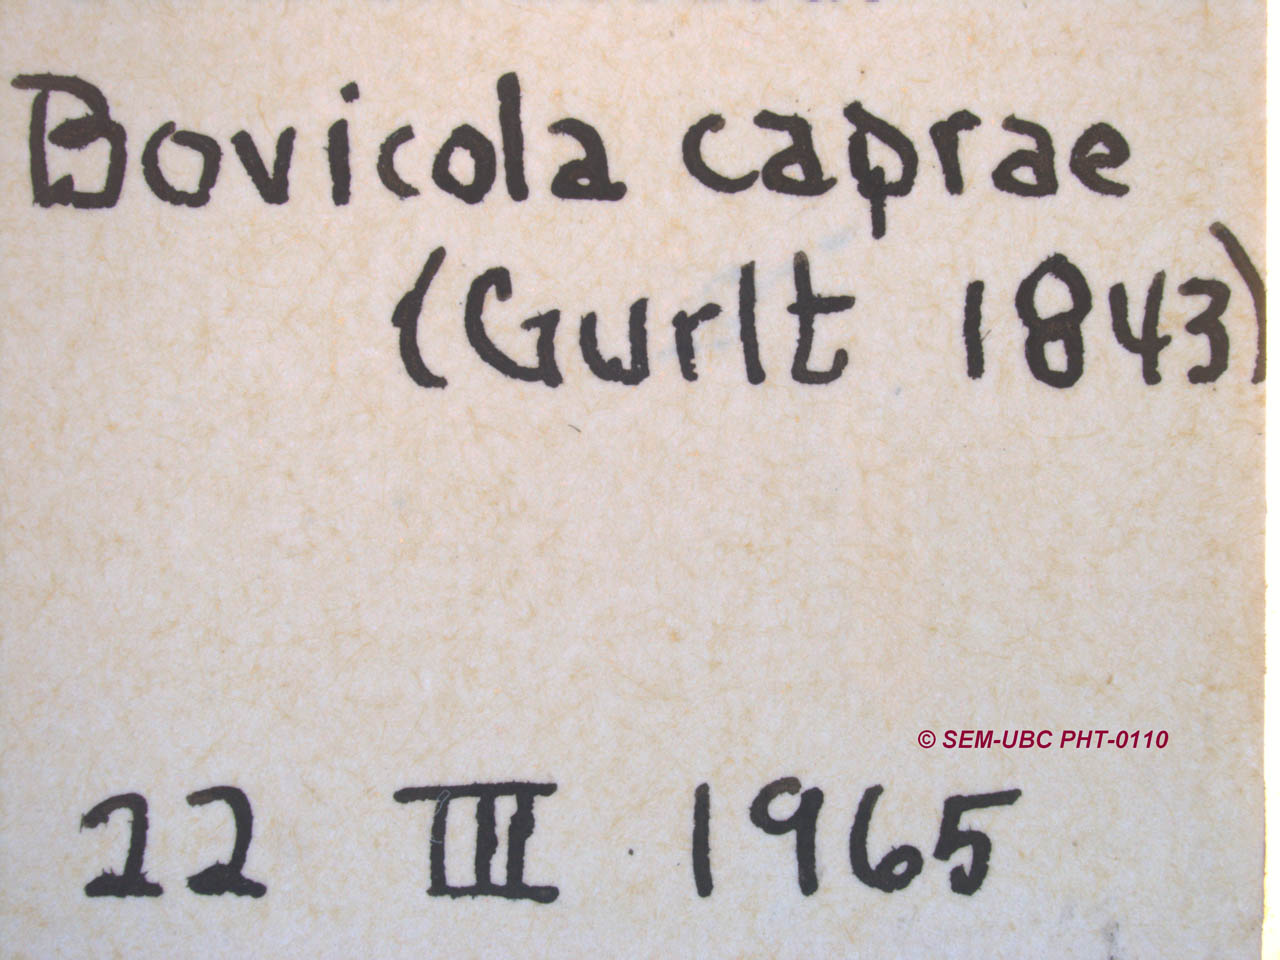 Bovicola caprae
(Gurlt 1843)
© SEM-UBC PHT-0110
22 III 1965